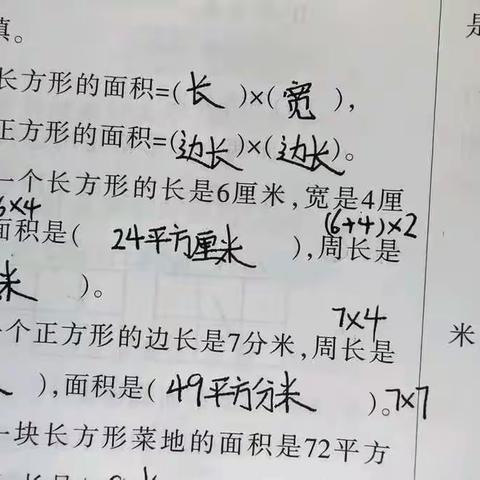 填。
长方形的面积=(长)×(宽),
正方形的面积=(边长)×(边长)。
一个长方形的长是6厘米,宽是4厘
6×4 (6+4)×2
面积是(24平方厘米),周长是
米)。
7×4
个正方形的边长是7分米,周长是
),面积是(49平方分米)。7×7
一块长方形菜地的面积是72平方
是
米